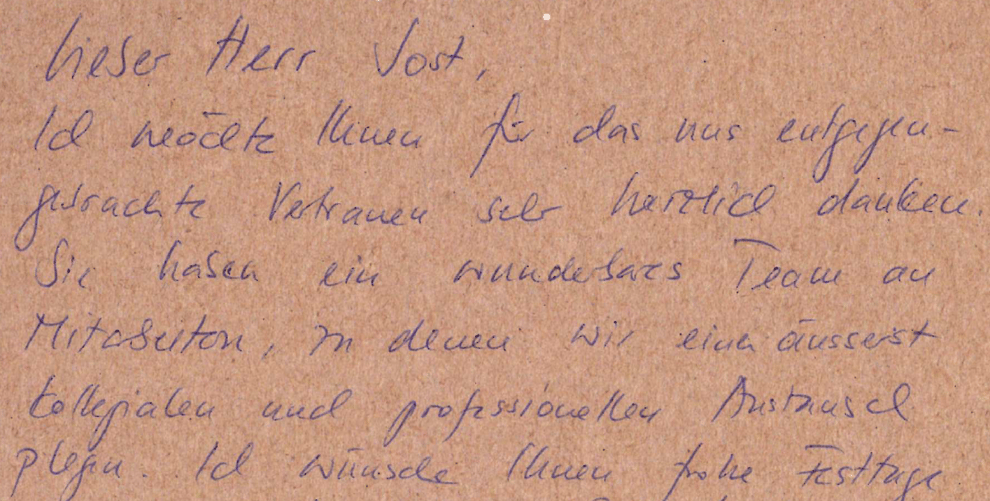 Lieber Herr Jost,
Ich möchte Ihnen für das uns entgegen-
gebrachte Vertrauen sehr herzlich danken.
Sie haben ein wunderbares Team an
Mitarbeitern, zu denen wir einen äusserst
kollegialen und professionellen Austausch
pflegen. Ich wünsche Ihnen frohe Festtage